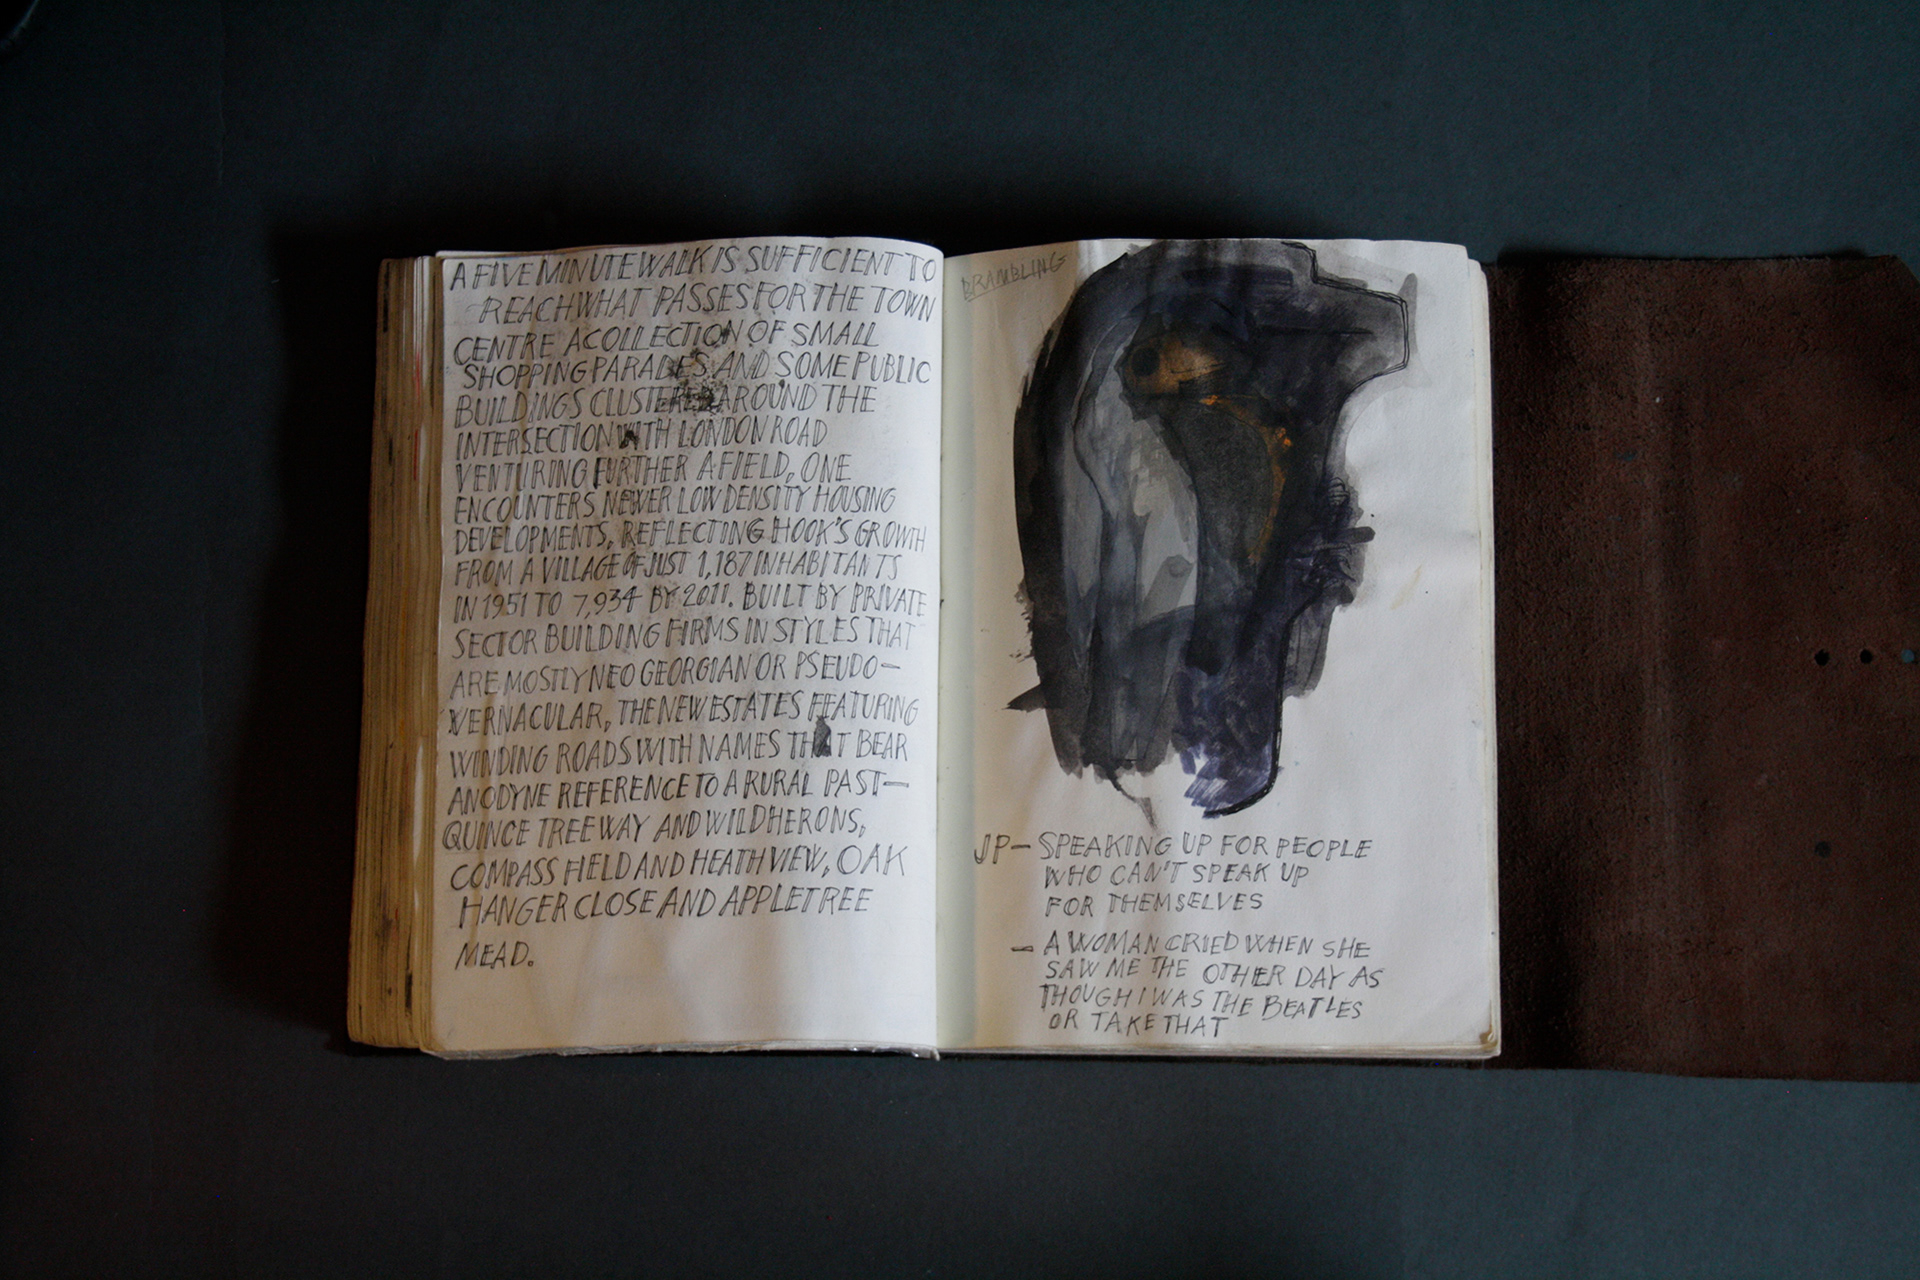 A FIVE MINUTE WALK IS SUFFICIENT TO
REACH WHAT PASSES FOR THE TOWN
CENTRE A COLLECTION OF SMALL
SHOPPING PARADES AND SOME PUBLIC
BUILDINGS CLUSTERED AROUND THE
INTERSECTION WITH LONDON ROAD
VENTURING FURTHER A FIELD, ONE
ENCOUNTERS NEWER LOW DENSITY HOUSING
DEVELOPMENTS, REFLECTING HOOK'S GROWTH
FROM A VILLAGE OF JUST 1,187 INHABITANTS
IN 1951 TO 7,934 BY 2011. BUILT BY PRIVATE
SECTOR BUILDING FIRMS IN STYLES THAT
ARE MOSTLY NEO GEORGIAN OR PSEUDO-
VERNACULAR, THE NEW ESTATES FEATURING
WINDING ROADS WITH NAMES THAT BEAR
ANODYNE REFERENCE TO A RURAL PAST-
QUINCE TREE WAY AND WILD HERONS,
COMPASS FIELD AND HEATH VIEW, OAK
HANGER CLOSE AND APPLETREE
MEAD.
BRAMBLING
JP- SPEAKING UP FOR PEOPLE
WHO CAN'T SPEAK UP
FOR THEMSELVES
- A WOMAN CRIED WHEN SHE
SAW ME THE OTHER DAY AS
THOUGH I WAS THE BEATLES
OR TAKE THAT